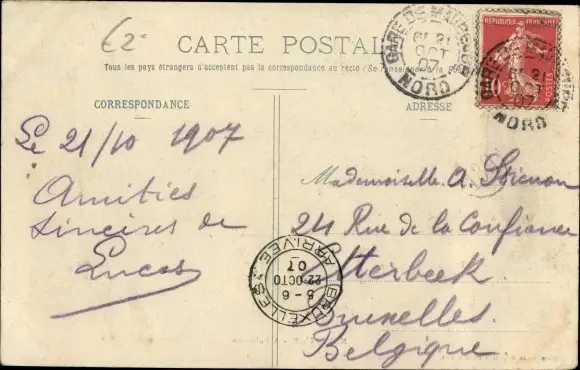 £2-
CARTE POSTALE
Tous les pays étrangers n'acceptent pas la correspondance au recto (Se renseigner à la poste)
CORRESPONDANCE
ADRESSE
GARE DE MAUBEUGE
21
OCT
07
NORD
RÉPUBLIQUE FRANÇAISE
10
POSTES
GARE DE MAUBEUGE
21
OCT
07
NORD
Le 21/10 1907
Amitiés
sincères de
Lucas
Mademoiselle A. Stiénon
24 Rue de la Confiance
Etterbeek
Bruxelles.
Belgique.
BRUXELLES
5-6
22 OCTO
07
ARRIVÉE